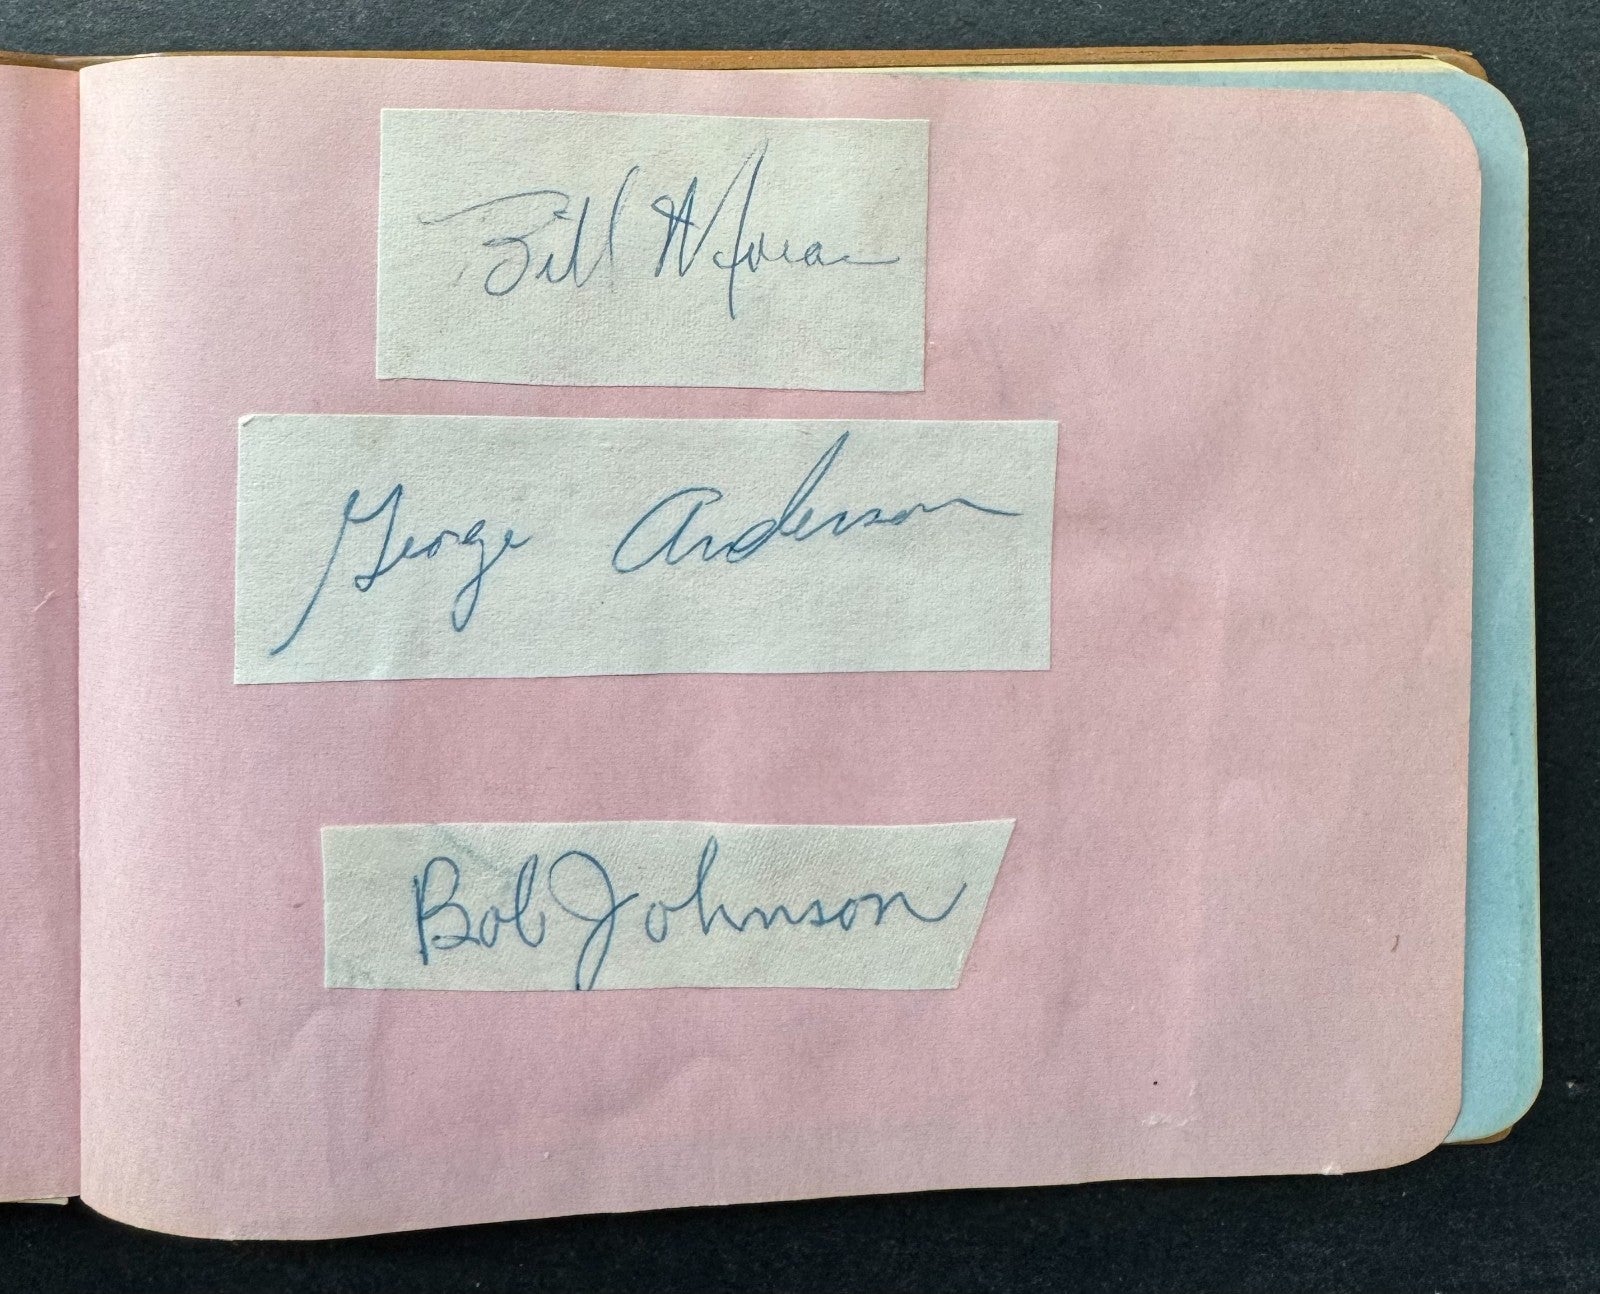 Bill
George Anderson
Bob Johnson